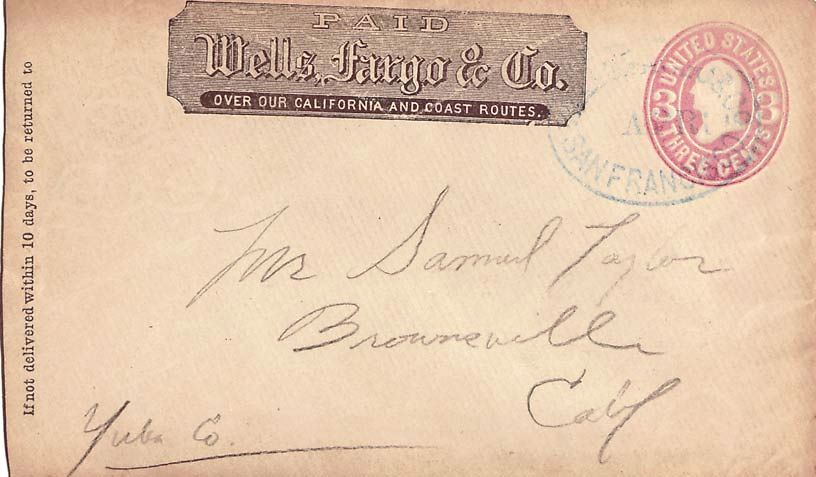 PAID
Wells, Fargo & Co.
OVER OUR CALIFORNIA AND COAST ROUTES.
UNITED STATES
THREE CENTS
3 3
SAN FRANC
Mr Samuel Taylor
Brownsville
Calf
Yuba Co.
If not delivered within 10 days, to be returned to